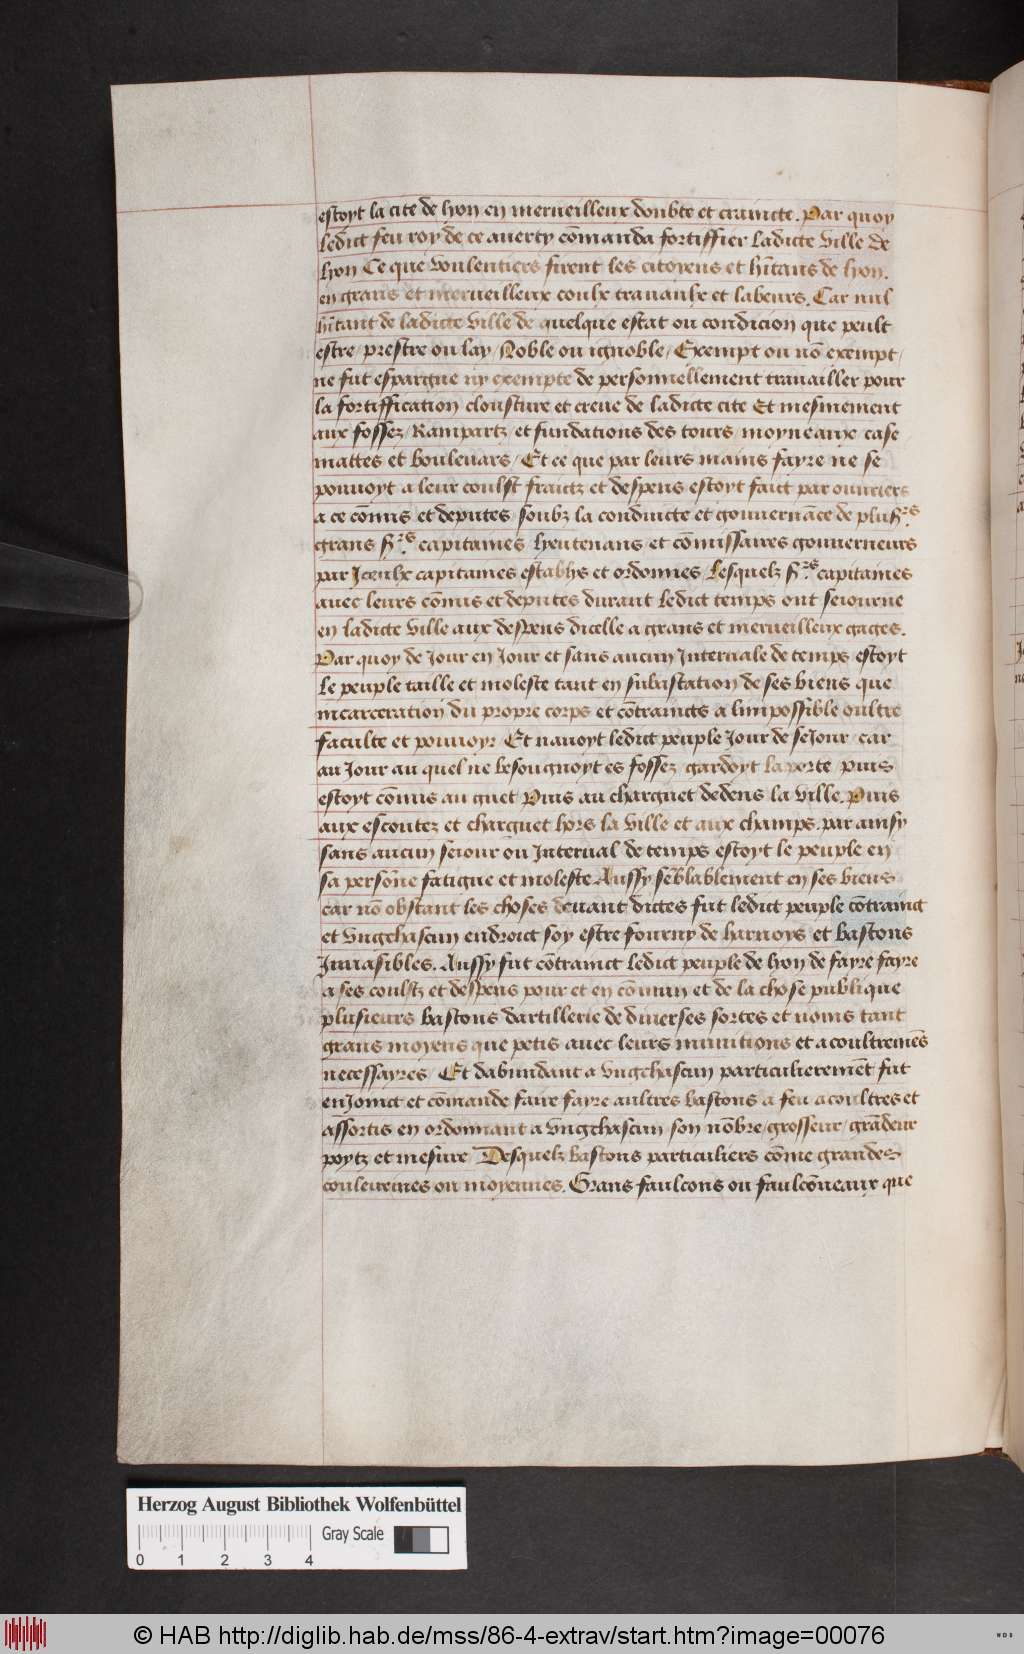 estoyt la cite de lyon en merueilleux doubte et craincte. Par quoy
ledict feu roy de ce auerty cõmanda fortiffier ladicte ville de
lyon Ce que voulentiers firent les citoyens et hĩtans de lyon.
en grans et merueilleux coulx trauaulx et labeurs. Car nul
hĩtant de ladicte ville de quelque estat ou condicion que peult
estre / prestre ou lay / Noble ou ignoble / Exempt ou nõ exempt /
ne fut espargne ny exempte de personnellement trauailler pour
la fortiffication clousture et creue de ladicte cite Et mesmement
aux fossez / Rampartz / et fundations des tours / moyneaux / case
mattes et bouleuars / Et ce que par leurs mains fayre ne se
pouuoyt a leur coulst fraictz et despens estoyt faict par ouuriers
a ce cõmis et deputes / soubz la conduicte et gouuernãce de plusrs
grans srs capitaines lyeutenans et cõmissaires gouuerneurs
par Jceulx capitaines establys et ordonnes / Lesquelz srs capitaines
auec leurs cõmis et deputes durant ledict temps ont seiourne
en ladicte ville aux despens dicelle a grans et merueilleux gages.
Par quoy de Jour en Jour et sans aucun Interuale de temps estoyt
le peuple taille et moleste tant en subastation de ses biens que
incarceration du propre corps et cõtraincts a limpossible oultre
faculte et pouuoyr / Et nauoyt ledict peuple Jour de seJour / car
au Jour au quel ne besougnoyt es fossez / gardoyt la porte / puis
estoyt cõmis au guet Puis au charguet dedens la ville. Puis
aux escoutez et charguet hors la ville et aux champs. par ainsy
sans aucun seiour ou Interual de temps estoyt le peuple en
sa persõne fatigue et moleste. Aussy sẽblablement en ses biens
car nõ obstant les choses deuant dictes fut ledict peuple cõtrainct
et vngchascun endroict soy estre fourny de harnoys et bastons
Inuasibles. Aussy fut cõtrainct ledict peuple de lyon de fayre fayre
a ses coulstz et despens pour et en cõmun et de la chose publique
plusieurs bastons dartillerie de diuerses sortes et noms tant
grans moyens que petis auec leurs munitions et acoultremẽs
necessayres / Et dabundant a vngchascun particulieremẽt fut
enJoinct et cõmande faire fayre aultres bastons a feu acoultres et
assortis en ordonnant a vngchascun son nõbre / grosseur / grãdeur
poytz et mesure / Desquelz bastons particuliers cõme grandes
couleurines ou moyennes. Grans faulcons ou faulcõneaux que
Herzog August Bibliothek Wolfenbüttel
Gray Scale
0 1 2 3 4
© HAB http://diglib.hab.de/mss/86-4-extrav/start.htm?image=00076